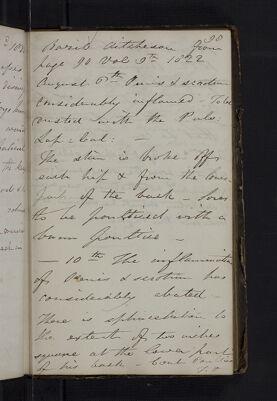 90
David Aitcheson from
page 90 Vol 9th 1822
August 8th Penis & scrotum
considerably inflamed - To be
dusted with the Pulv.
Lap: Cal: -
The skin is broke off
each hip & from the lower
part of the back - sores
to be poulticed with a
warm poultice -
- 10th The inflammation
of Penis & scrotum has
considerably abated -
There is sphacelation to
the extent of two inches
square at the lower part
of his back - Cont Poultice